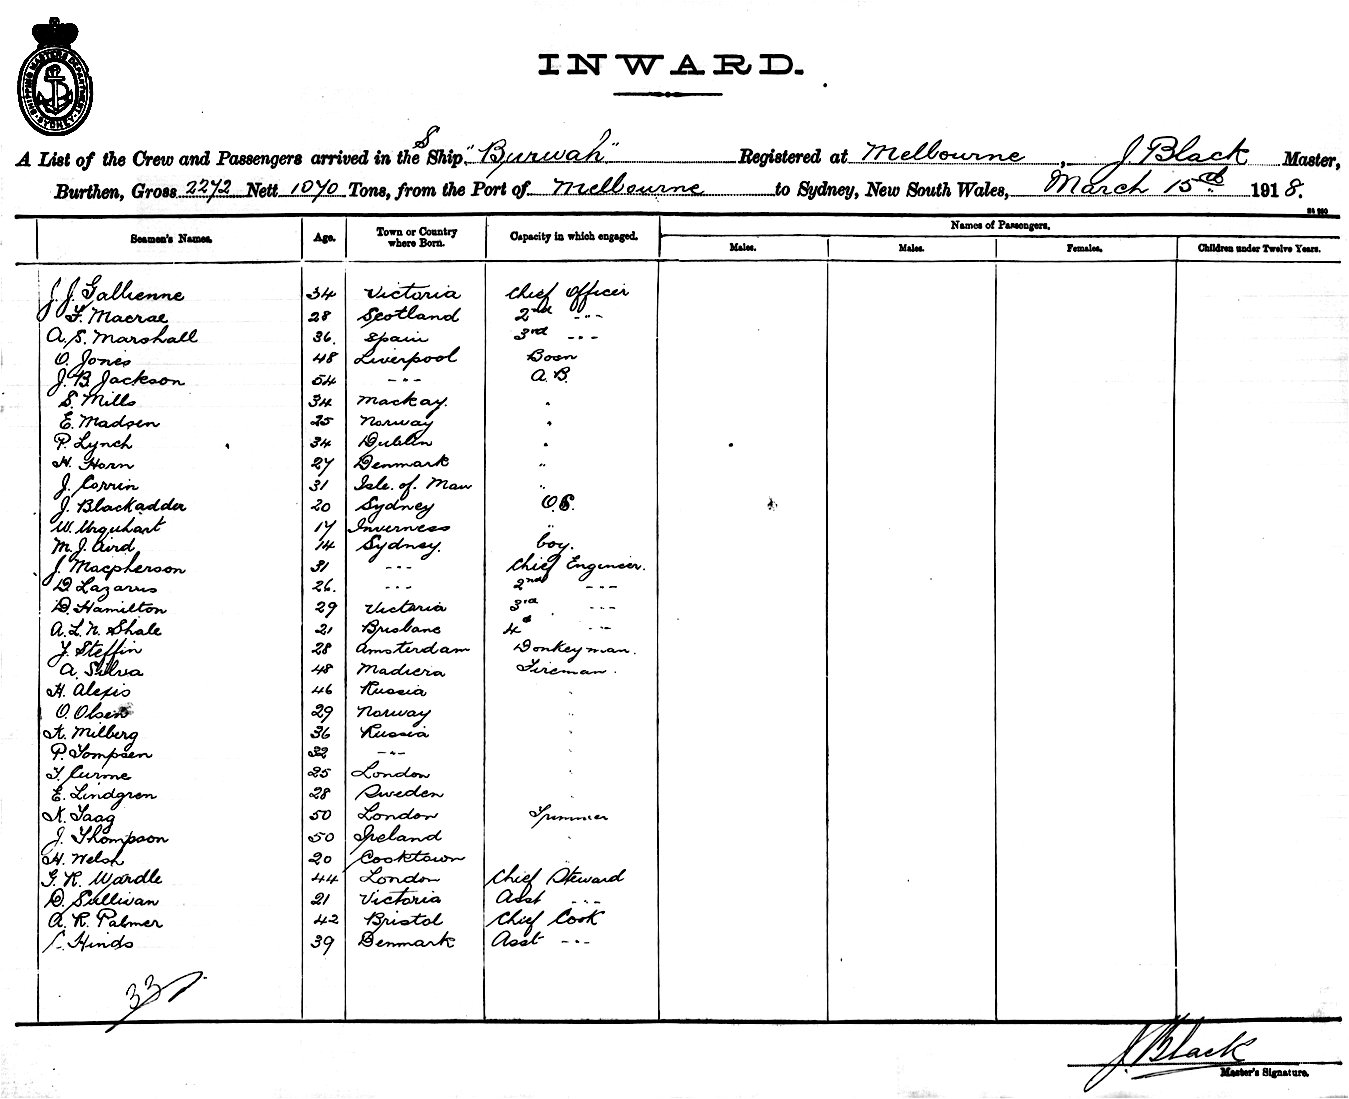 SHIPPING MASTERS DEPARTMENT SYDNEY
INWARD.
A List of the Crew and Passengers arrived in the S Ship "Burwah" Registered at Melbourne, J Black Master,
Burthen, Gross 2272 Nett 1070 Tons, from the Port of Melbourne to Sydney, New South Wales, March 15th 1918.
Seamen's Names. Age. Town or Country where Born. Capacity in which engaged. Names of Passengers.
Males. Males. Females. Children under Twelve Years.
J. J. Gallienne 34 Victoria Chief Officer
F. Macrae 28 Scotland 2nd -"-
A. S. Marshall 36. Spain 3rd -"-
O. Jones 48 Liverpool Bosn
J. B. Jackson 54 -"- A.B.
S. Mills 34 Mackay. "
E. Madsen 25 Norway "
P. Lynch 34 Dublin "
H. Horn 27 Denmark "
J. Corrin 31 Isle. of. Man "
J. Blackadder 20 Sydney O.S.
W. Urquhart 17 Inverness "
M. J. Aird 14 Sydney. boy.
J. Macpherson 31 -"- Chief Engineer.
D. Lazarus 26. -"- 2nd -"-
D. Hamilton 29 Victoria 3rd -"-
A. L. N. Shale 21 Brisbane 4th -"-
J. Steffin 28 Amsterdam Donkeyman.
A. Silva 48 Madiera Fireman.
H. Alexis 46 Russia "
O. Olsen 29 Norway "
K. Milberg 36 Russia "
P. Tompsen 32 -"- "
T. Curme 25 London "
E. Lindgren 28 Sweden "
N. Taag 50 London Trimmer
J. Thompson 50 Ireland "
H. Welsh 20 Cooktown "
G. R. Wardle 44 London Chief Steward
D. Sullivan 21 Victoria Asst -"-
A. R. Palmer 42 Bristol Chief Cook
Hinds 39 Denmark Asst -"-
33
J. Black
Master's Signature.